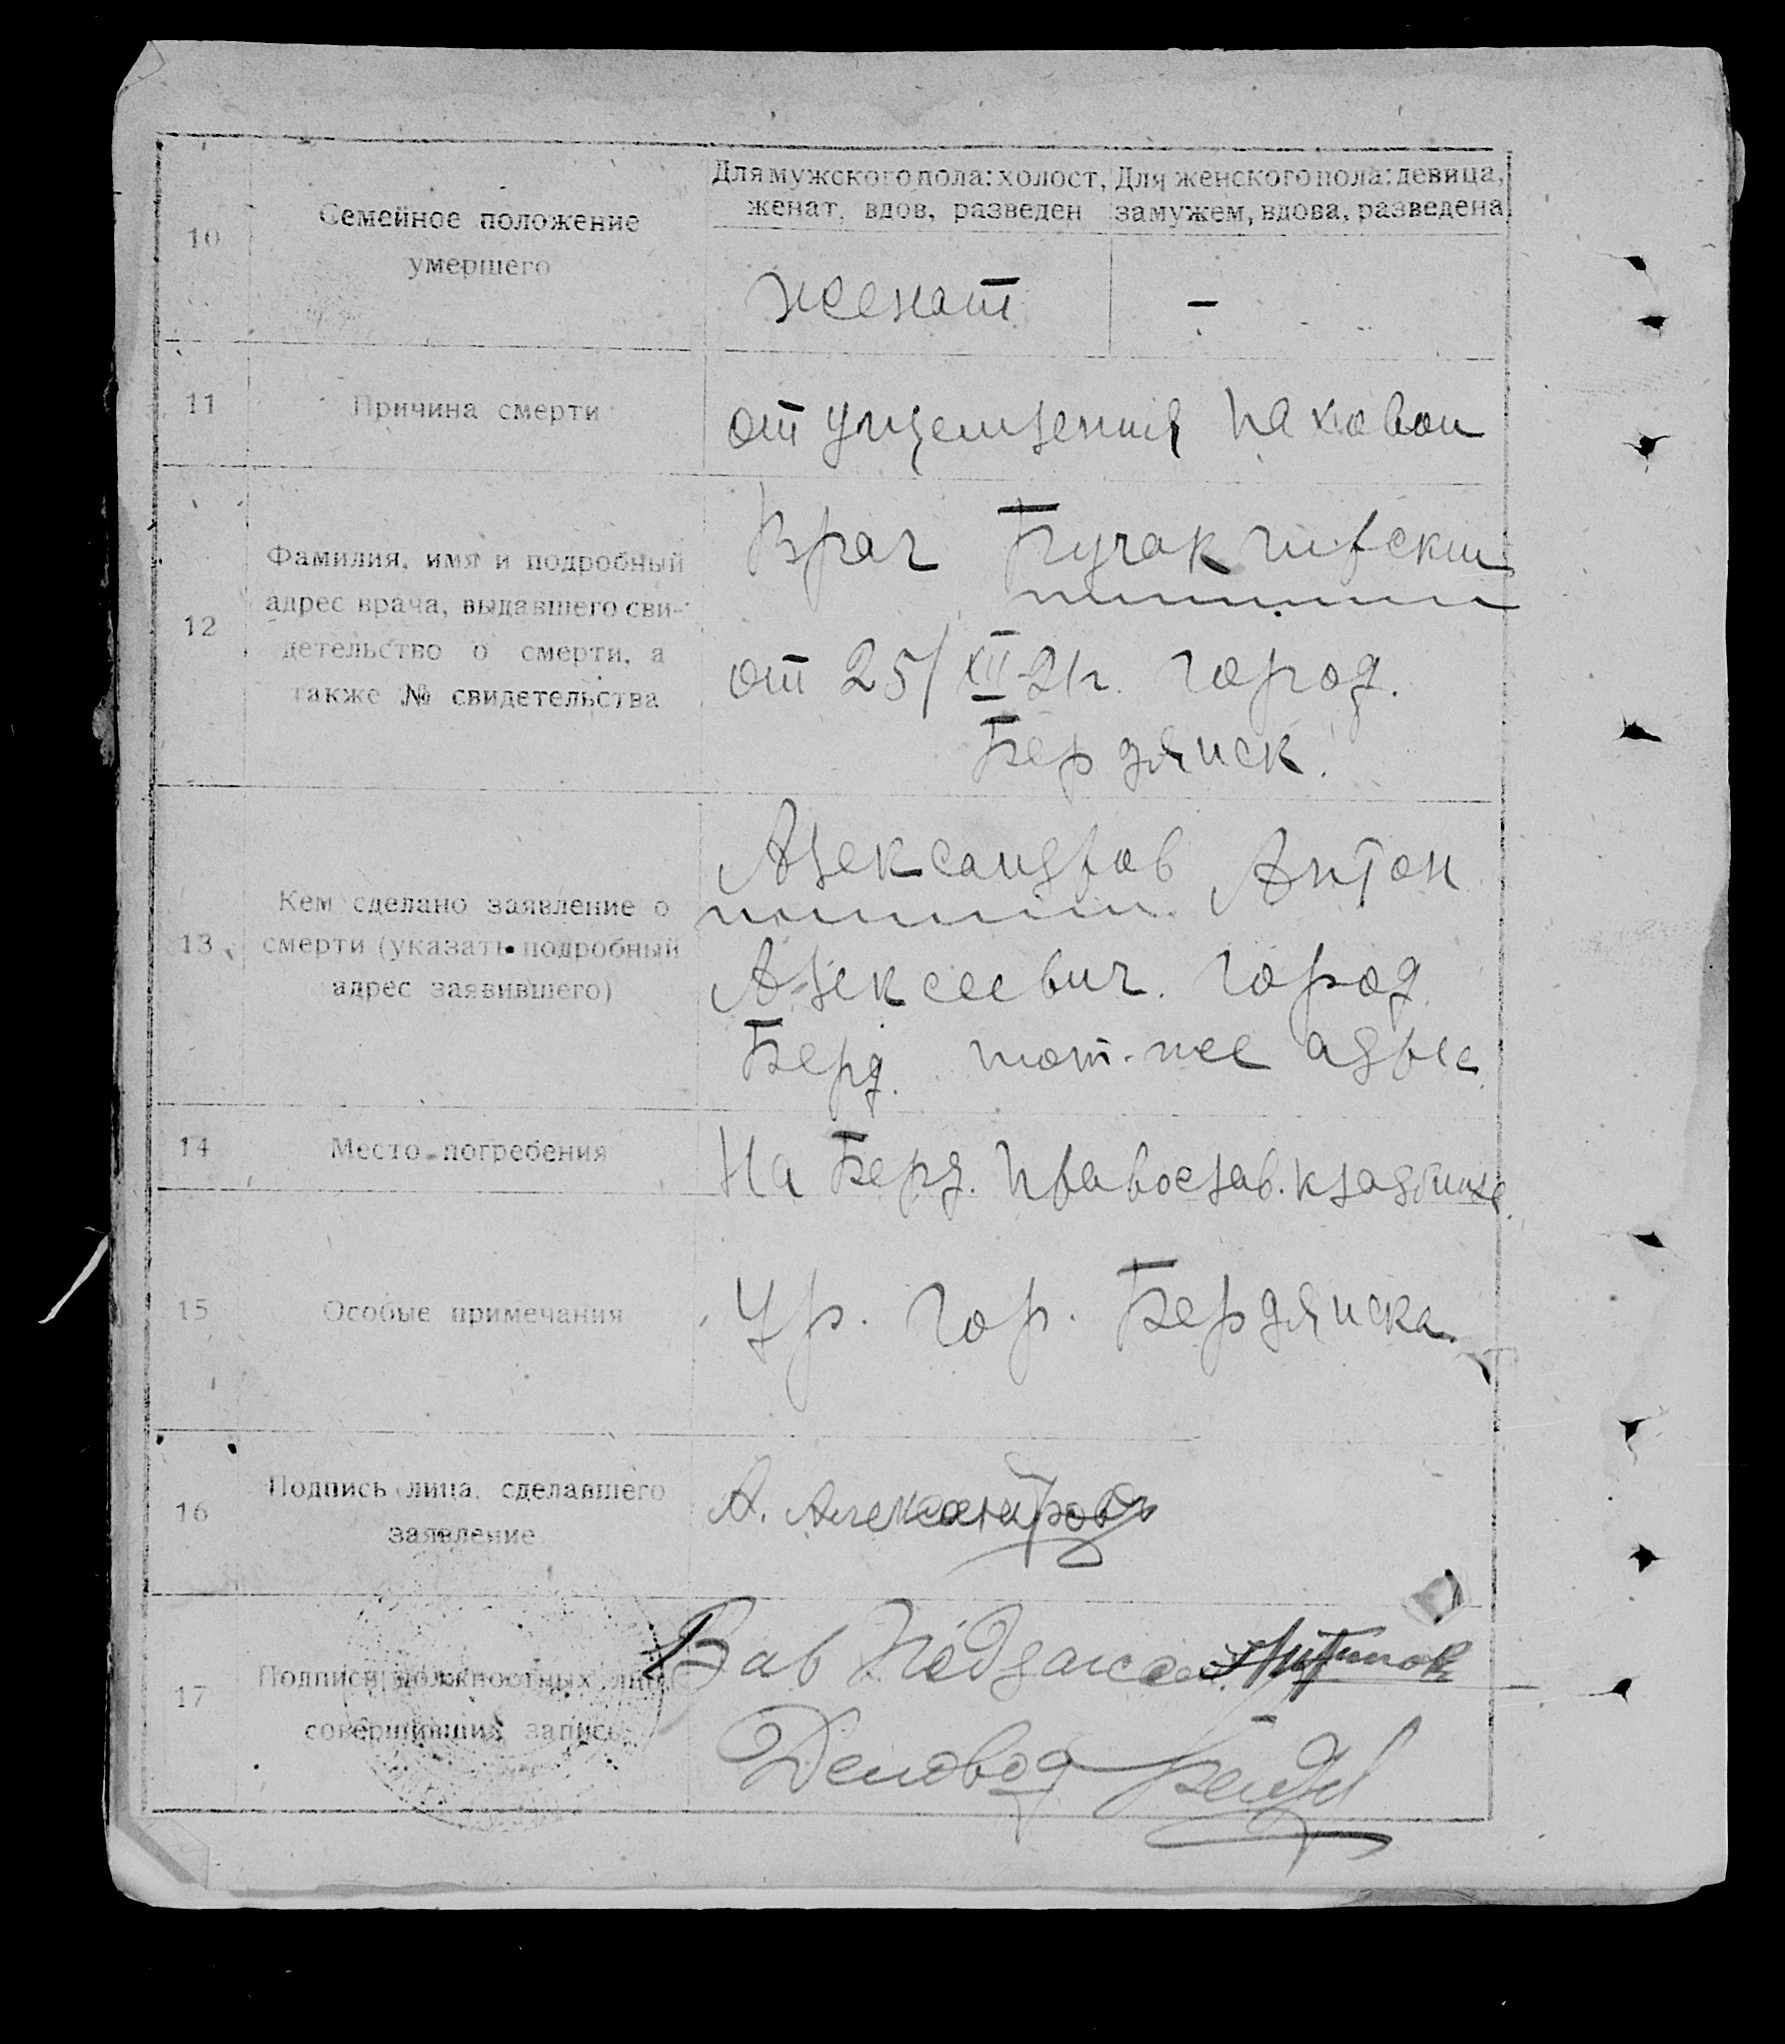 Для мужского пола: холост, женат, вдов, разведен
Для женского пола: девица, замужем, вдова, разведена
10 Семейное положение умершего
женат
–
11 Причина смерти
от ущемления паховой
12 Фамилия, имя и подробный
адрес врача, выдавшего сви-
детельство о смерти, а
также № свидетельства
Врач
от 25/XII-21г. город.
Бердянск.
13 Кем сделано заявление о
смерти (указать подробный
адрес заявившего)
Александров Антон
Алексеевич. город
Берд. тот-же адрес.
14 Место погребения
На Берд. православ. кладбище.
15 Особые примечания
Ур. гор. Бердянска.
16 Подпись лица, сделавшего
заявление
А. Александровъ
17 Подписи должностных лиц,
совершивших запись
Зав Подзагсом
Деловод